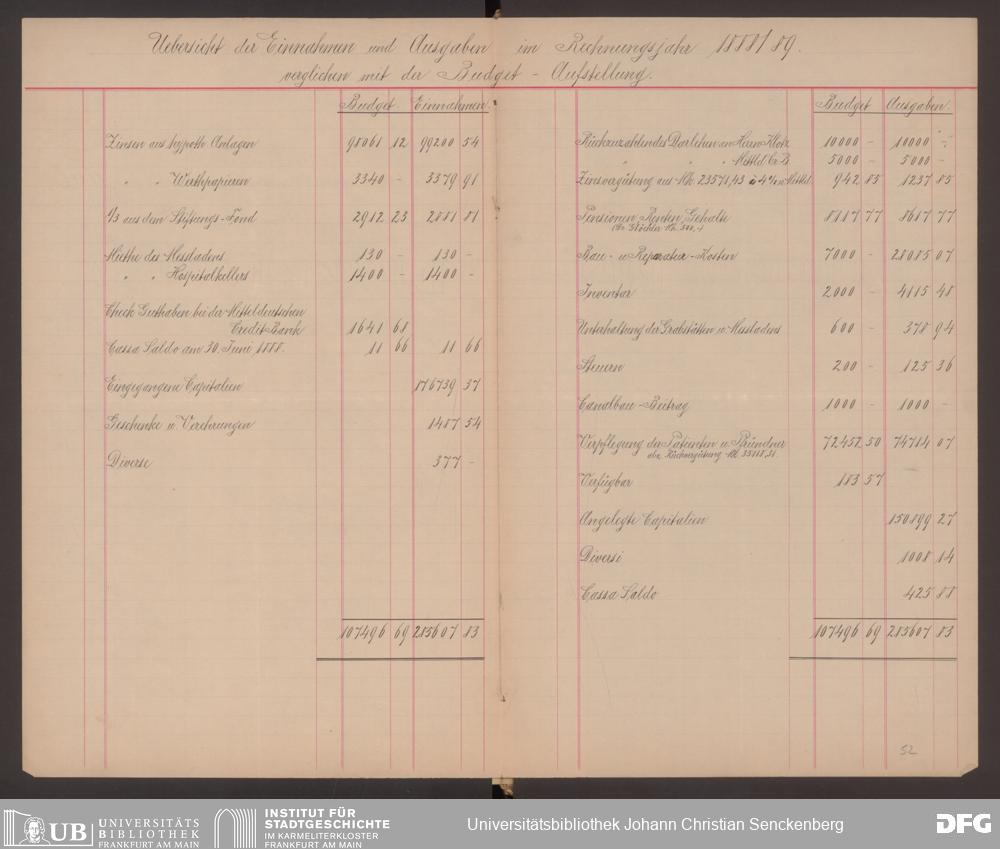 Uebersicht der Einnahmen und Ausgaben im Rechnungsjahr 1888/89.
verglichen mit der Budget-Aufstellung.
Budget Einnahmen
Zinsen aus hypoth. Anlagen 98061 12 99200 54
" " Werthpapieren 3340 - 3379 91
1/3 aus dem Stiftungs-Fond 2912 23 2881 81
Miethe des Messladens 130 - 130 -
" " Hospitalkellers 1400 - 1400 -
Check Guthaben bei der Mitteldeutschen
Credit-Bank 1641 68
Cassa Saldo am 30. Juni 1888. 11 66 11 66
Eingegangene Capitalien 176739 37
Geschenke u. Verehrungen 1487 54
Diverse 377 -
107496 69 285607 83
Budget Ausgaben.
Rückzuzahlendes Darlehen an Herrn Klotz 10000 - 10000 -
" " " Mitteld. Cr. B. 5000 - 5000 -
Zinsvergütung aus Mk. 23571,43 à 4% a. Mitteld. 942 85 1237 85
Pensionen, Renten, Gehalte 8117 77 8617 77
Bau- u. Reparatur-Kosten 7000 - 28085 07
Inventar 2000 - 4115 48
Unterhaltung der Grabstätten u. Messladens 600 - 378 94
Steuern 200 - 125 36
Canalbau-Beitrag 1000 - 1000 -
Verpflegung der Patienten u. Pfründner 72452 50 74714 07
abz. Rückvergütung Mk. 35118,31
Verfügbar 183 57
Angelegte Capitalien 150899 27
Diversi 1008 14
Cassa Saldo 425 88
107496 69 285607 83
52
UB UNIVERSITÄTS
BIBLIOTHEK
FRANKFURT AM MAIN
INSTITUT FÜR
STADTGESCHICHTE
IM KARMELITERKLOSTER
FRANKFURT AM MAIN
Universitätsbibliothek Johann Christian Senckenberg
DFG